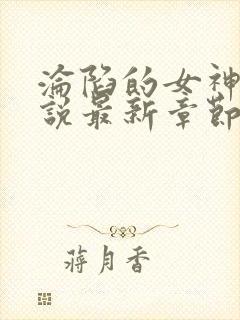 淪陷的女神
說最新章節
蔣月香